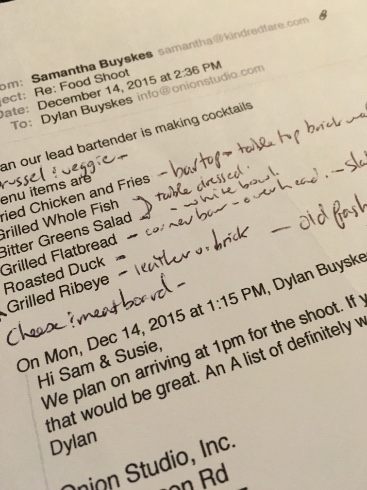 om: Samantha Buyskes samantha@kindredfare.com
ject: Re: Food Shoot
Date: December 14, 2015 at 2:36 PM
To: Dylan Buyskes info@onionstudio.com
an our lead bartender is making cocktails
russel & veggie -
enu items are
ried Chicken and Fries - bartop - table top brick
Grilled Whole Fish table dressed.
Bitter Greens Salad - white bowl.
Grilled Flatbread - corner bar - overhead. - sla
Roasted Duck
Grilled Ribeye - leather v. brick - old fash
Cheese & meat board -
On Mon, Dec 14, 2015 at 1:15 PM, Dylan Buyske
Hi Sam & Susie,
We plan on arriving at 1pm for the shoot. If y
that would be great. An A list of definitely w
Dylan
Onion Studio, Inc.
on Rd